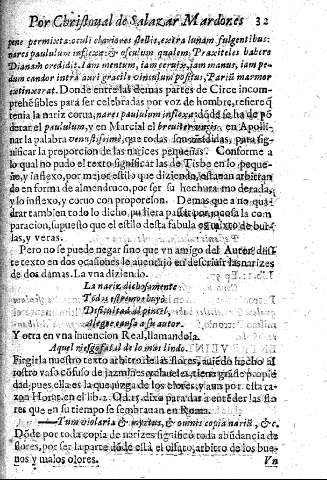 Por Christoual de Salazar Mardones 32
pene permixta: oculi clariores stellis, extra lunam fulgentibus:
nares paululum inflexæ: & osculum qualem Praxiteles habere
Dianam credidit. Iam mentum, iam ceruix, iam manus, iam pe-
dum candor intra auri gracile vinculum positus, Parium marmor
extinxerat. Donde entre las demas partes de Circe incom-
prehésibles para ser celebradas por voz de hombre, refiere q̃
tenia la nariz corua, nares paululum inflexæ: dóde se ha de pó
derar el paululum, y en Marcial el breuiter en Apoli-
nar la palabra que todas son para sig-
nificar la proporcion de las narices pequeñas. Conforme a
lo qual no pudo el texto significar las de Tisbe en lo peque-
ño, y inflexo, por mejor estilo que diziendo, estauan arbitran
do en forma de almendruco, por ser su hechura moderada,
y lo inflexo, y coruo con proporcion. Demas que a no qua-
drar tambien todo lo dicho, pudiera passar por jocosa la com
paracion, supuesto que el estilo desta fabula es mixto de bur-
las, y veras.
Pero no se puede negar sino que vn amigo del Autor deste
re texto en dos ocasiones le auentajò en descriuir las narizes
de dos damas. La vna diziendo.
La nariz dichosamente
Todo estremo huyò
Dificultad al pincel,
alegre causa a su autor.
Y otra en vna inuencion Real, llamandola.
Aquel de lo mas lindo.
Fingirla nuestro texto arbitro de las flores, auiédo hecho al
rostro vaso cófuso de jazmines y claueles, tiene gracia y propie
dad, pues ella es la que juzga de los olores, y aun por esta ra-
zon Horat. en el lib. 2. Od. 15. dixo para dar a entéder las flo
res que en su tiempo se sembrauan en Roma.
—Tum violaria & myrtus, & omnis copia nariũ, &c.
Dóde por toda copia de narizes significó toda abúdancia de
flores, por ser la parte dóde está el olfato, arbitro de los bue-
nos y malos olores. Vn